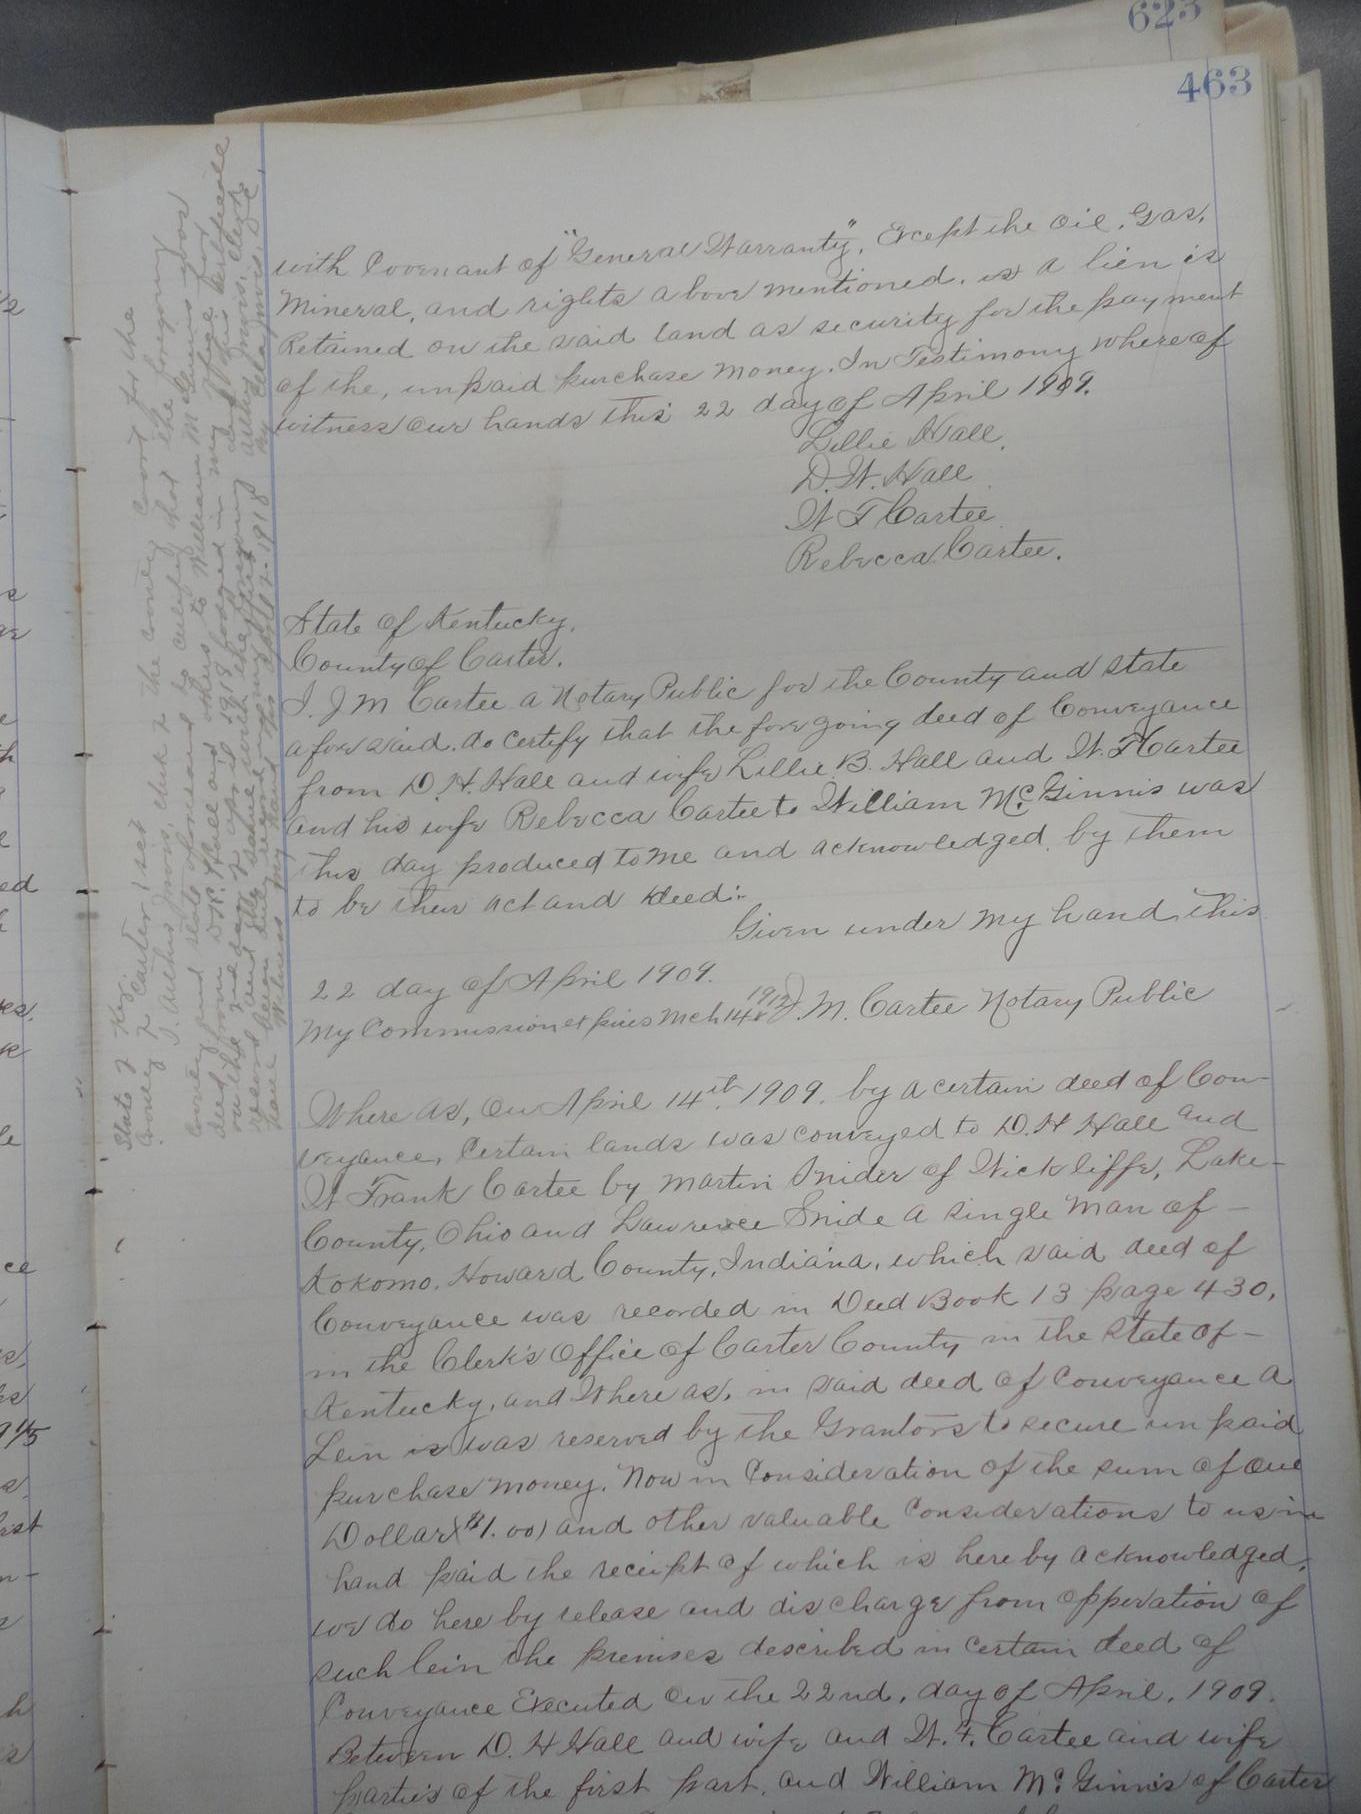 623
463
with Covenant of "General Warranty", Except the Oil, Gas,
Mineral, and rights above mentioned, is a lien is
Retained on the said land as security for the payment
of the, unpaid purchase money. In Testimony whereof
witness our hands this 22 day of April 1909.
Lillie Hall.
D. H. Hall
W F Cartee
Rebecca Cartee.
State of Kentucky,
County of Carter.
I. J M Cartee a Notary Public for the County and state
aforesaid. do certify that the foregoing deed of Conveyance
from D. H. Hall and wife Lillie B. Hall and W. F Cartee
and his wife Rebecca Cartee to William McGinnis was
this day produced to me and acknowledged by them
to be their act and deed:-
Given under my hand, this
22 day of April 1909.
My Commission expires Mch 14 1912 J. M. Cartee Notary Public
Where as, on April 14th, 1909. by a certain deed of Con-
veyance, Certain lands was conveyed to D. H Hall and
W Frank Cartee by Martin Snider of Wickliffe, Lake-
County, Ohio and Lawrence Snide a single man of-
Kokomo. Howard County, Indiana, which said deed of
Conveyance was recorded in Deed Book 13 page 430,
in the Clerk's Office of Carter County in the State of-
Kentucky, and Where as, in said deed of Conveyance a
Lein is was reserved by the Grantors to secure unpaid
purchase money. Now in Consideration of the sum of One
Dollar ($1.00) and other valuable Considerations to us in
hand paid the receipt of which is hereby acknowledged,
we do here by release and discharge from opperation of
such lein the premises described in certain deed of
Conveyance Executed on the 22nd, day of April, 1909.
Between D. H Hall and wife and W. F. Cartee and wife
partie's of the first part, and William McGinnis of Carter
State of Ky.
County of Carter, Sct
I. Arthur Jarvis, clerk of the County Court for the
County and state aforesaid do certify that the foregoing
deed from D. H. Hall and others to William McGinnis was
on the 2nd day of April 1918 lodged in my office for
record and the same with the foregoing and this certificate
have been duly recorded in my office
Witness my hand this 1918 Arthur Jarvis, Clerk